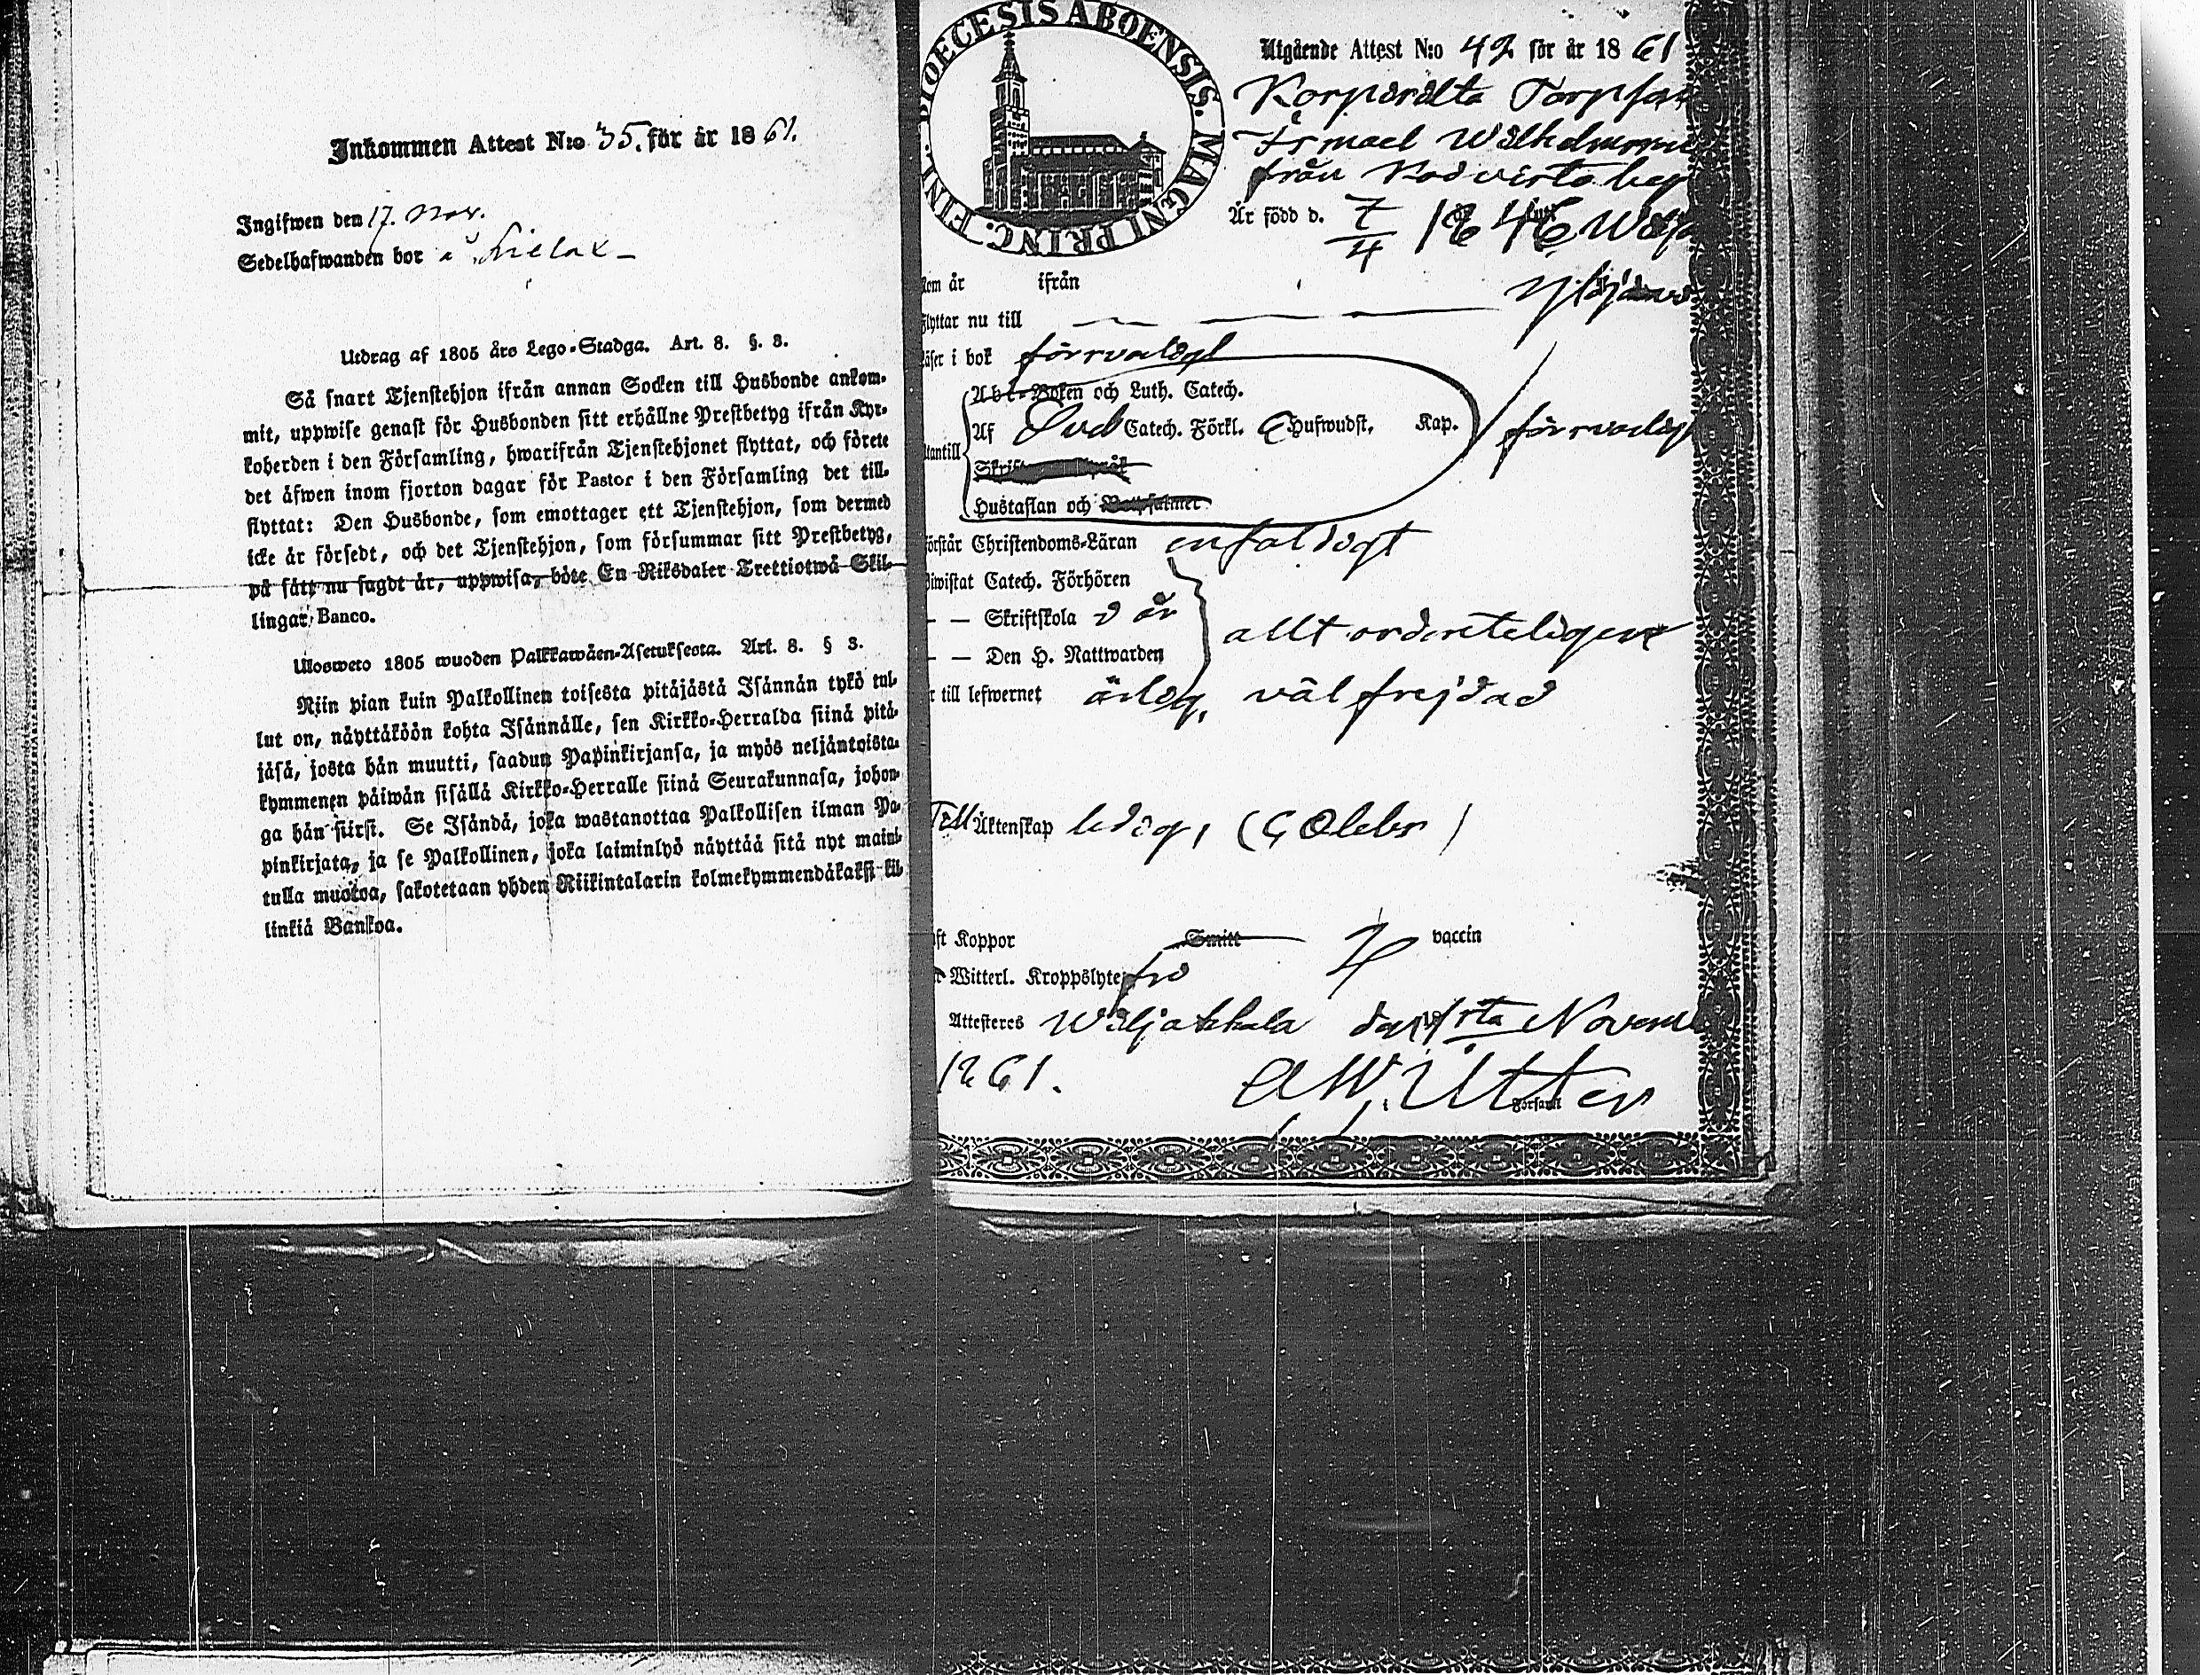 Inkommen Attest N:o 35. för år 1861.
Ingifwen den 17. Nov.
Sedelhafwanden bor å Lielax
Utdrag af 1805 års Lego-Stadga. Art. 8. §. 3.
Så snart Tjenstehjon ifrån annan Socken till Husbonde ankom-
mit, uppwise genast för Husbonden sitt erhållne Prestbetyg ifrån Kyr-
koherden i den Församling, hwarifrån Tjenstehjonet flyttat, och förete
det äfwen inom fjorton dagar för Pastor i den Församling det till-
flyttat: Den Husbonde, som emottager ett Tjenstehjon, som dermed
icke är försedt, och det Tjenstehjon, som försummar sitt Prestbetyg,
på sätt nu sagdt är, uppwisa, böte En Riksdaler Trettiotwå Skil-
lingar Banco.
Ulosweto 1805 wuoden Palkkawäen-Asetuksesta. Art. 8. § 3.
Niin pian kuin Palkollinen toisesta pitäjästä Isännän tykö tul-
lut on, näyttäköön kohta Isännälle, sen Kirkko-Herralda siinä pitä-
jäsä, josta hän muutti, saadun Papinkirjansa, ja myös neljäntoista-
kymmenen päiwän sisällä Kirkko-Herralle siinä Seurakunnasa, johon-
ga hän siirsi. Se Isändä, joka wastanottaa Palkollisen ilman Pa-
pinkirjata, ja se Palkollinen, joka laiminlyö näyttää sitä nyt maini-
tulla muotoa, sakotetaan yhden Riikintalarin kolmekymmendäkaksi kil-
linkiä Bankoa.
DIOECESIS ABOENSIS. MAGNI PRINC. FINL.
Utgående Attest N:o 42 för år 1861
Ismael Wilhelm
från
Är född d. 7/4 1846
kom år ifrån
Flyttar nu till Ylöjärvi
Läser i bok försvarligt
Abc-Boken och Luth. Catech.
Utantill Af Catech. Förkl. Hufwudst. Kap. försvarligt
Hustaflan och Botpsalmer
Förstår Christendoms-Läran enfaldigt
Biwistat Catech. Förhören
— — Skriftskola i år allt ordenteligen
— — Den H. Nattwarden
Är till lefwernet ärlig, väl frejdad
Till Äktenskap ledig, (Coelebs)
Haft Koppor Smitt vaccin
Witterl. Kroppslyte fri
Attesteres Wiljakkala den 1sta Novem
1861. A W. Utter
Församl